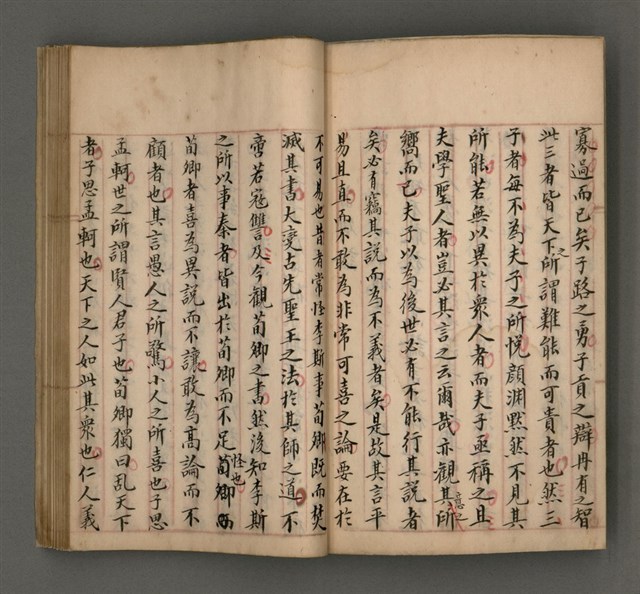 寡過而已矣子路之勇子貢之辯冉有之智
此三者皆天下之所謂難能而可貴者也然三
子者每不為夫子之所悅顏淵黙然不見其
所能若無以異於衆人者而夫子亟稱之且
夫學聖人者豈必其言之云爾哉亦觀其意之所
嚮而已夫子以為後世必有不能行其説者
矣必有竊其説而為不義者矣是故其言平
易且直而不敢為非常可喜之論要在於
不可易也昔者常怪李斯事荀卿既而焚
滅其書大變古先聖王之法於其師之道不
啻若寇讐及今觀荀卿之書然後知李斯
之所以事秦者皆出於荀卿而不足怪也荀卿
荀卿者喜為異説而不讓敢為高論而不
顧者也其言愚人之所驚小人之所喜也子思
孟軻世之所謂賢人君子也荀卿獨曰乱天下
者子思孟軻也天下之人如此其衆也仁人義